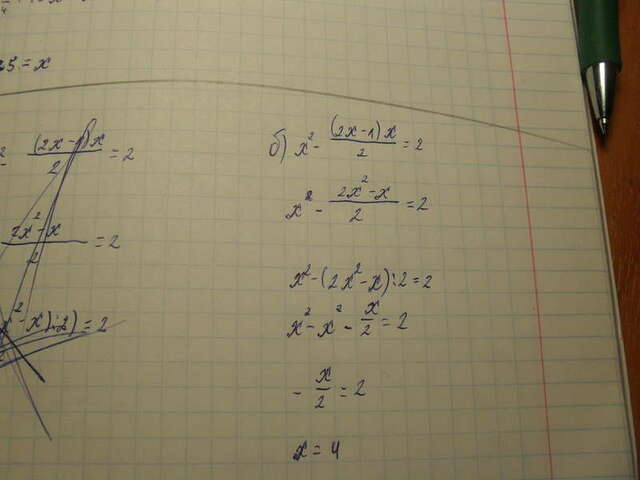 25 = x
(2x-1)x/2 = 2
2x²-x/2 = 2
x²-x):2) = 2
б) x² - (2x-1)x/2 = 2
x² - 2x²-x/2 = 2
x² - (2x²-x):2 = 2
x² - x² - x/2 = 2
- x/2 = 2
x = 4